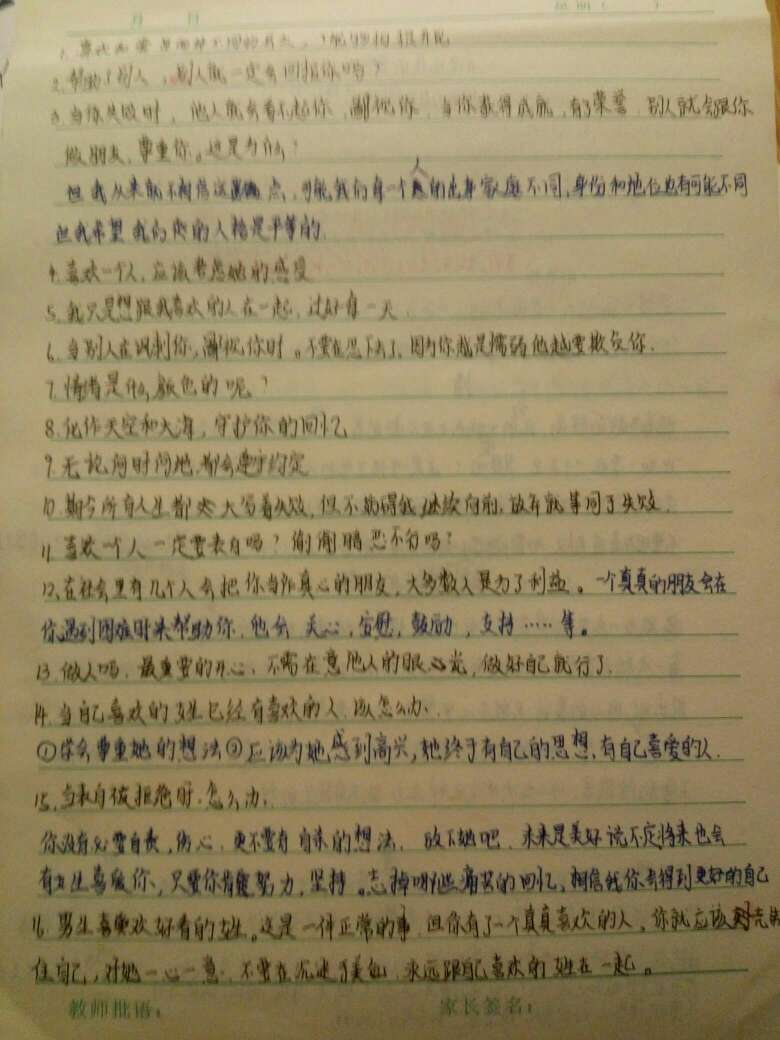 月 日 星期( )
1.喜欢
2.帮助了别人,别人就一定会回报你吗?
3.当你失败时,他人就会看不起你,鄙视你,当你获得成就,有了荣誉,别人就会跟你
做朋友,尊重你。这是为什么?
但我从来就不相信这点,可能我们每一个人的出身家庭不同,身份和地位也有可能不同
但我希望我们的人格是平等的.
4.喜欢一个人,应该考虑她的感受
5.我只是想跟我喜欢的人在一起,过好每一天.
6.当别人在讽刺你,鄙视你时。不要在忍下去了,因为你越是懦弱他越要欺负你.
7.情绪是什么颜色的呢?
8.化作天空和大海,守护你的回忆
9.无论何时何地,都会遵守约定
10.期今所有人生都大写着失败,但不妨碍我继续向前,放弃就等同了失败.
11.喜欢一个人一定要表白吗?偷偷暗恋不行吗?
12.在社会里有几个人会把你当作真心的朋友,大多数人是为了利益。一个真真的朋友会在
你遇到困难时来帮助你,他会关心,安慰,鼓励,支持……等。
13.做人吗,最重要的开心,不需在意他人的眼光,做好自己就行了.
14.当自己喜欢的女生已经有喜欢的人,该怎么办.
①学会尊重她的想法②应该为她感到高兴,她终于有自己的思想,有自己喜爱的人.
15.当表白被拒绝时.怎么办.
你没有必要自责,伤心,更不要有自杀的想法,放下她吧,未来是美好说不定将来也会
有女生喜欢你,只要你肯努力,坚持。忘掉哪些痛苦的回忆,相信我你会得到更好的自己
16.男生喜欢好看的女生。这是一件正常的事,但你有了一个真真喜欢的人,你就应该
住自己,对她一心一意.不要在沉迷了美色,永远跟自己喜欢的女生在一起。
教师批语: 家长签名: